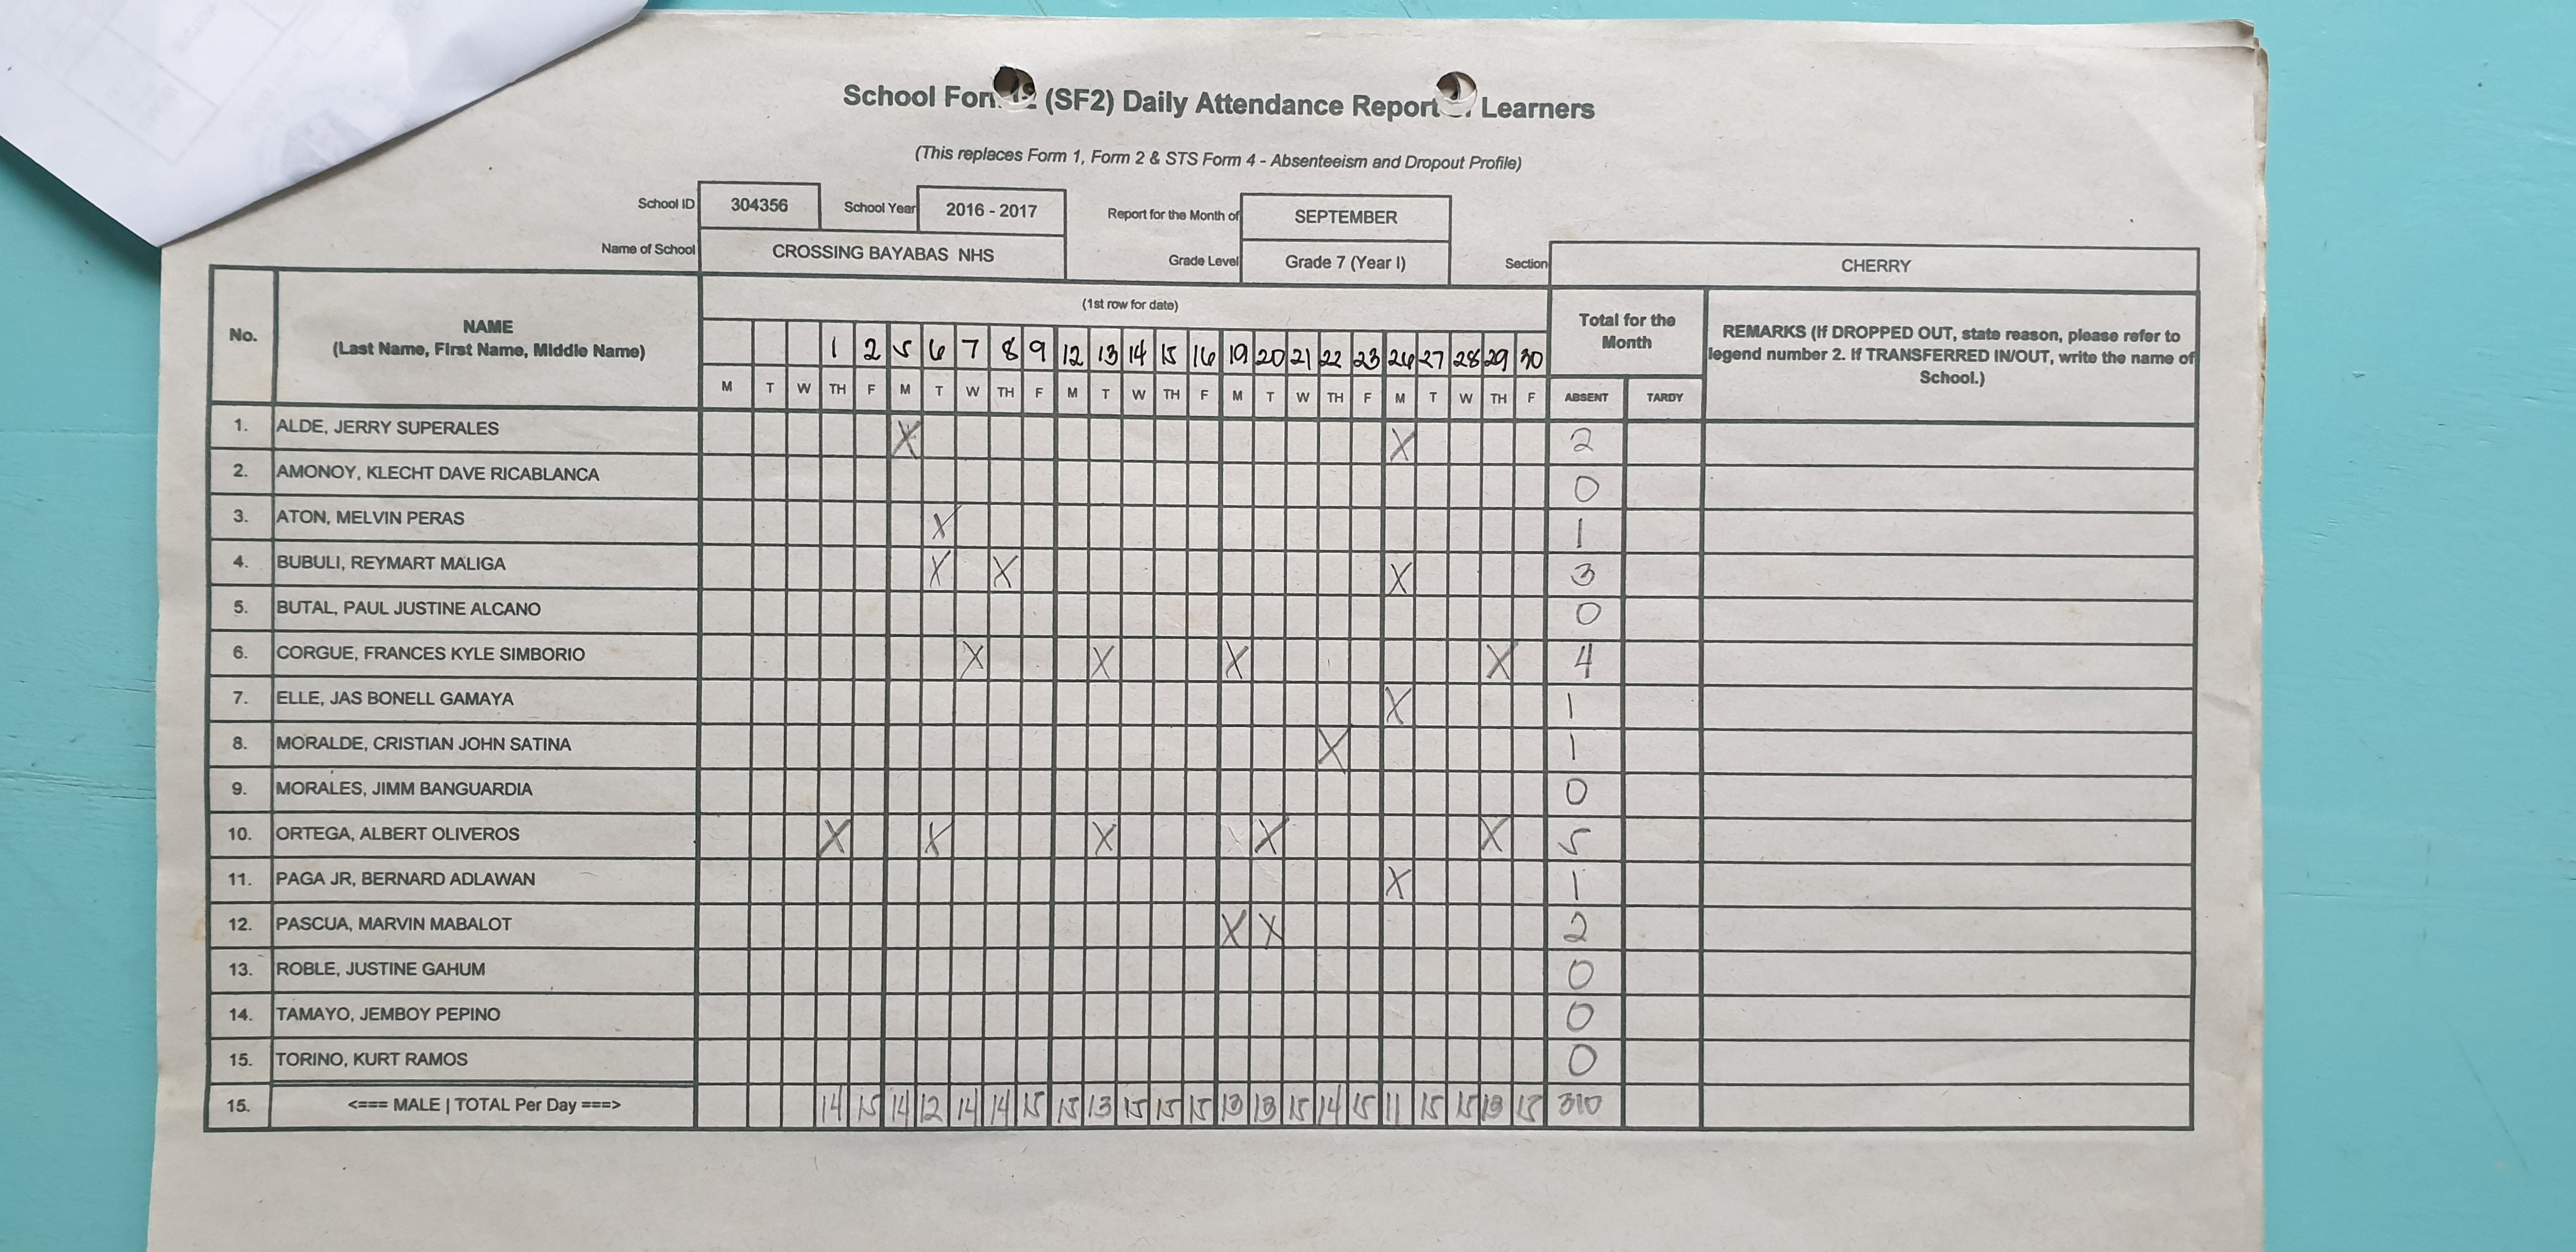 School Form 2 (SF2) Daily Attendance Report of Learners
(This replaces Form 1, Form 2 & STS Form 4 - Absenteeism and Dropout Profile)
School ID 304356 School Year 2016 - 2017 Report for the Month of SEPTEMBER
Name of School CROSSING BAYABAS NHS Grade Level Grade 7 (Year I) Section CHERRY
No. NAME (Last Name, First Name, Middle Name) (1st row for date) Total for the Month REMARKS (If DROPPED OUT, state reason, please refer to legend number 2. If TRANSFERRED IN/OUT, write the name of School.)
1 2 5 6 7 8 9 12 13 14 15 16 19 20 21 22 23 26 27 28 29 30
M T W TH F M T W TH F M T W TH F M T W TH F M T W TH F ABSENT TARDY
1. ALDE, JERRY SUPERALES X X 2
2. AMONOY, KLECHT DAVE RICABLANCA 0
3. ATON, MELVIN PERAS X 1
4. BUBULI, REYMART MALIGA X X X 3
5. BUTAL, PAUL JUSTINE ALCANO 0
6. CORGUE, FRANCES KYLE SIMBORIO X X X X 4
7. ELLE, JAS BONELL GAMAYA X 1
8. MORALDE, CRISTIAN JOHN SATINA X 1
9. MORALES, JIMM BANGUARDIA 0
10. ORTEGA, ALBERT OLIVEROS X X X X X 5
11. PAGA JR, BERNARD ADLAWAN X 1
12. PASCUA, MARVIN MABALOT X X 2
13. ROBLE, JUSTINE GAHUM 0
14. TAMAYO, JEMBOY PEPINO 0
15. TORINO, KURT RAMOS 0
15. <=== MALE | TOTAL Per Day ===> 14 15 14 12 14 14 15 15 13 15 15 15 13 13 15 14 15 11 15 15 13 15 310